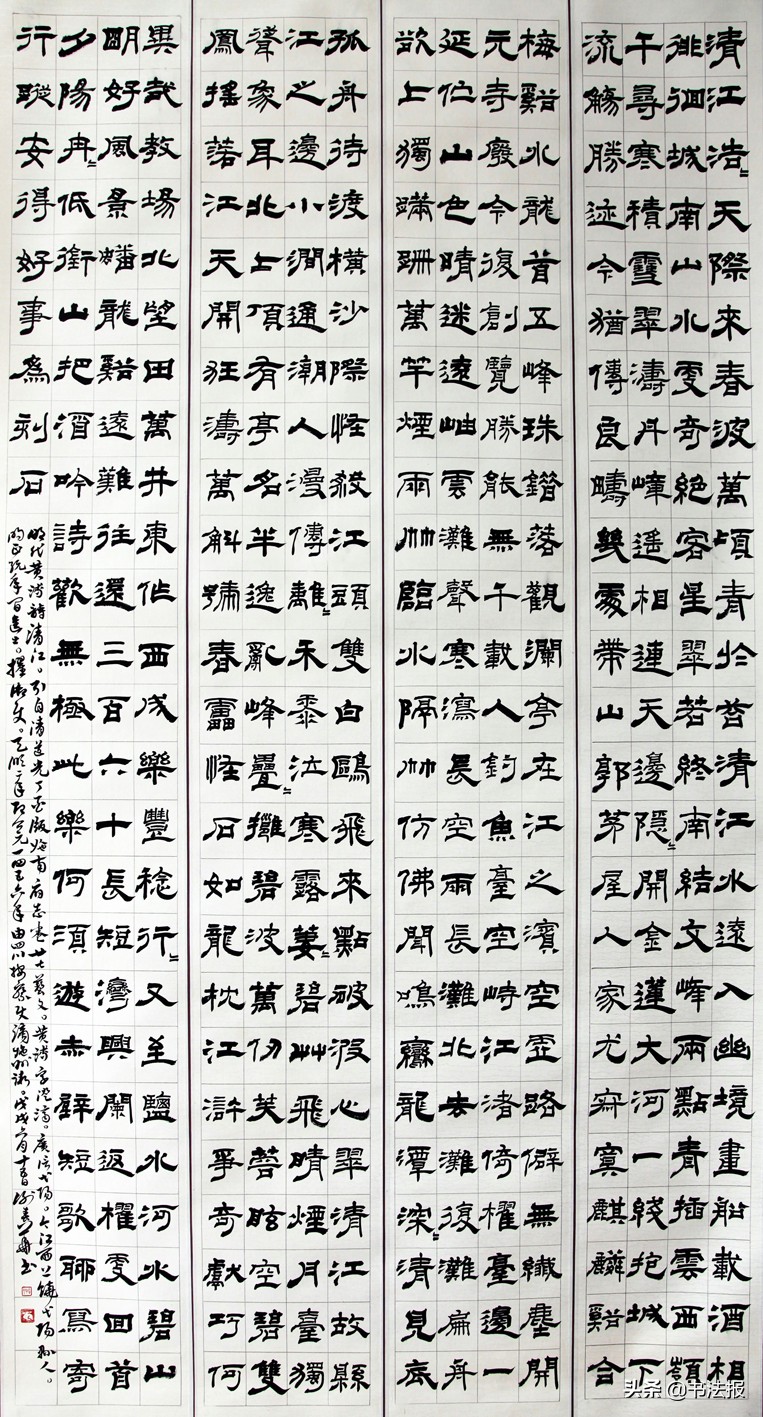 清江浩〻天際來春波萬頃青於苔清江水遠入幽境畫船載酒相
徘徊城南山水更奇絕客星翠若終南結文峰兩點青插雲西嶺
千尋寒積雪翠濤丹嶂遙相連天邊隱〻開金蓮大河一綫抱城下
流觴勝迹今猶傳良疇幾處帶山郭茅屋人家尤寂寞麒麟谿合
梅谿水龍首五峰珠錯落觀瀾亭在江之濱空虛路僻無纖塵開
元寺廢今復創覽勝能無千載人釣魚臺空峙江渚倚櫂臺邊一
延佇山色晴迷遠岫雲灘聲寒瀉長空雨長灘北去灘復灘扁舟
欲上獨蹣跚萬竿煙雨竹臨水隔竹仿佛聞鳴鸞龍潭深〻清見底
孤舟待渡橫沙際怪殺江頭雙白鷗飛來點破波心翠清江故縣
江之邊小澗通潮人漫傳離〻禾黍泣寒露萋〻碧艸飛晴煙月臺獨
聳象耳北上頂有亭名半逸亂峰疊〻攤碧波萬仞芙蓉眩空碧雙
鳳搖落江天開狂濤萬斛號春雷怪石如龍枕江滸爭奇獻巧何
異哉教場北望田萬井東作西成樂豐稔行〻又至鹽水河水碧山
明好風景蟠龍谿遠難往還三百六十長短灣興闌返櫂更回首
夕陽冉〻低銜山把酒吟詩歡無極此樂何須遊赤壁短歌聊寫寄
行蹤安得好事為刻石
明代黄溥詩清江。引自清道光丁酉版施南府志卷廿七藝文。黄溥字澄濟。廣信弋陽。今江西上饒弋陽縣人。
明正統年間進士。擢御史。天順二年即公元一四五六年由四川按察使謫施州衛。戊戌六月十五日書
头条 @书法报